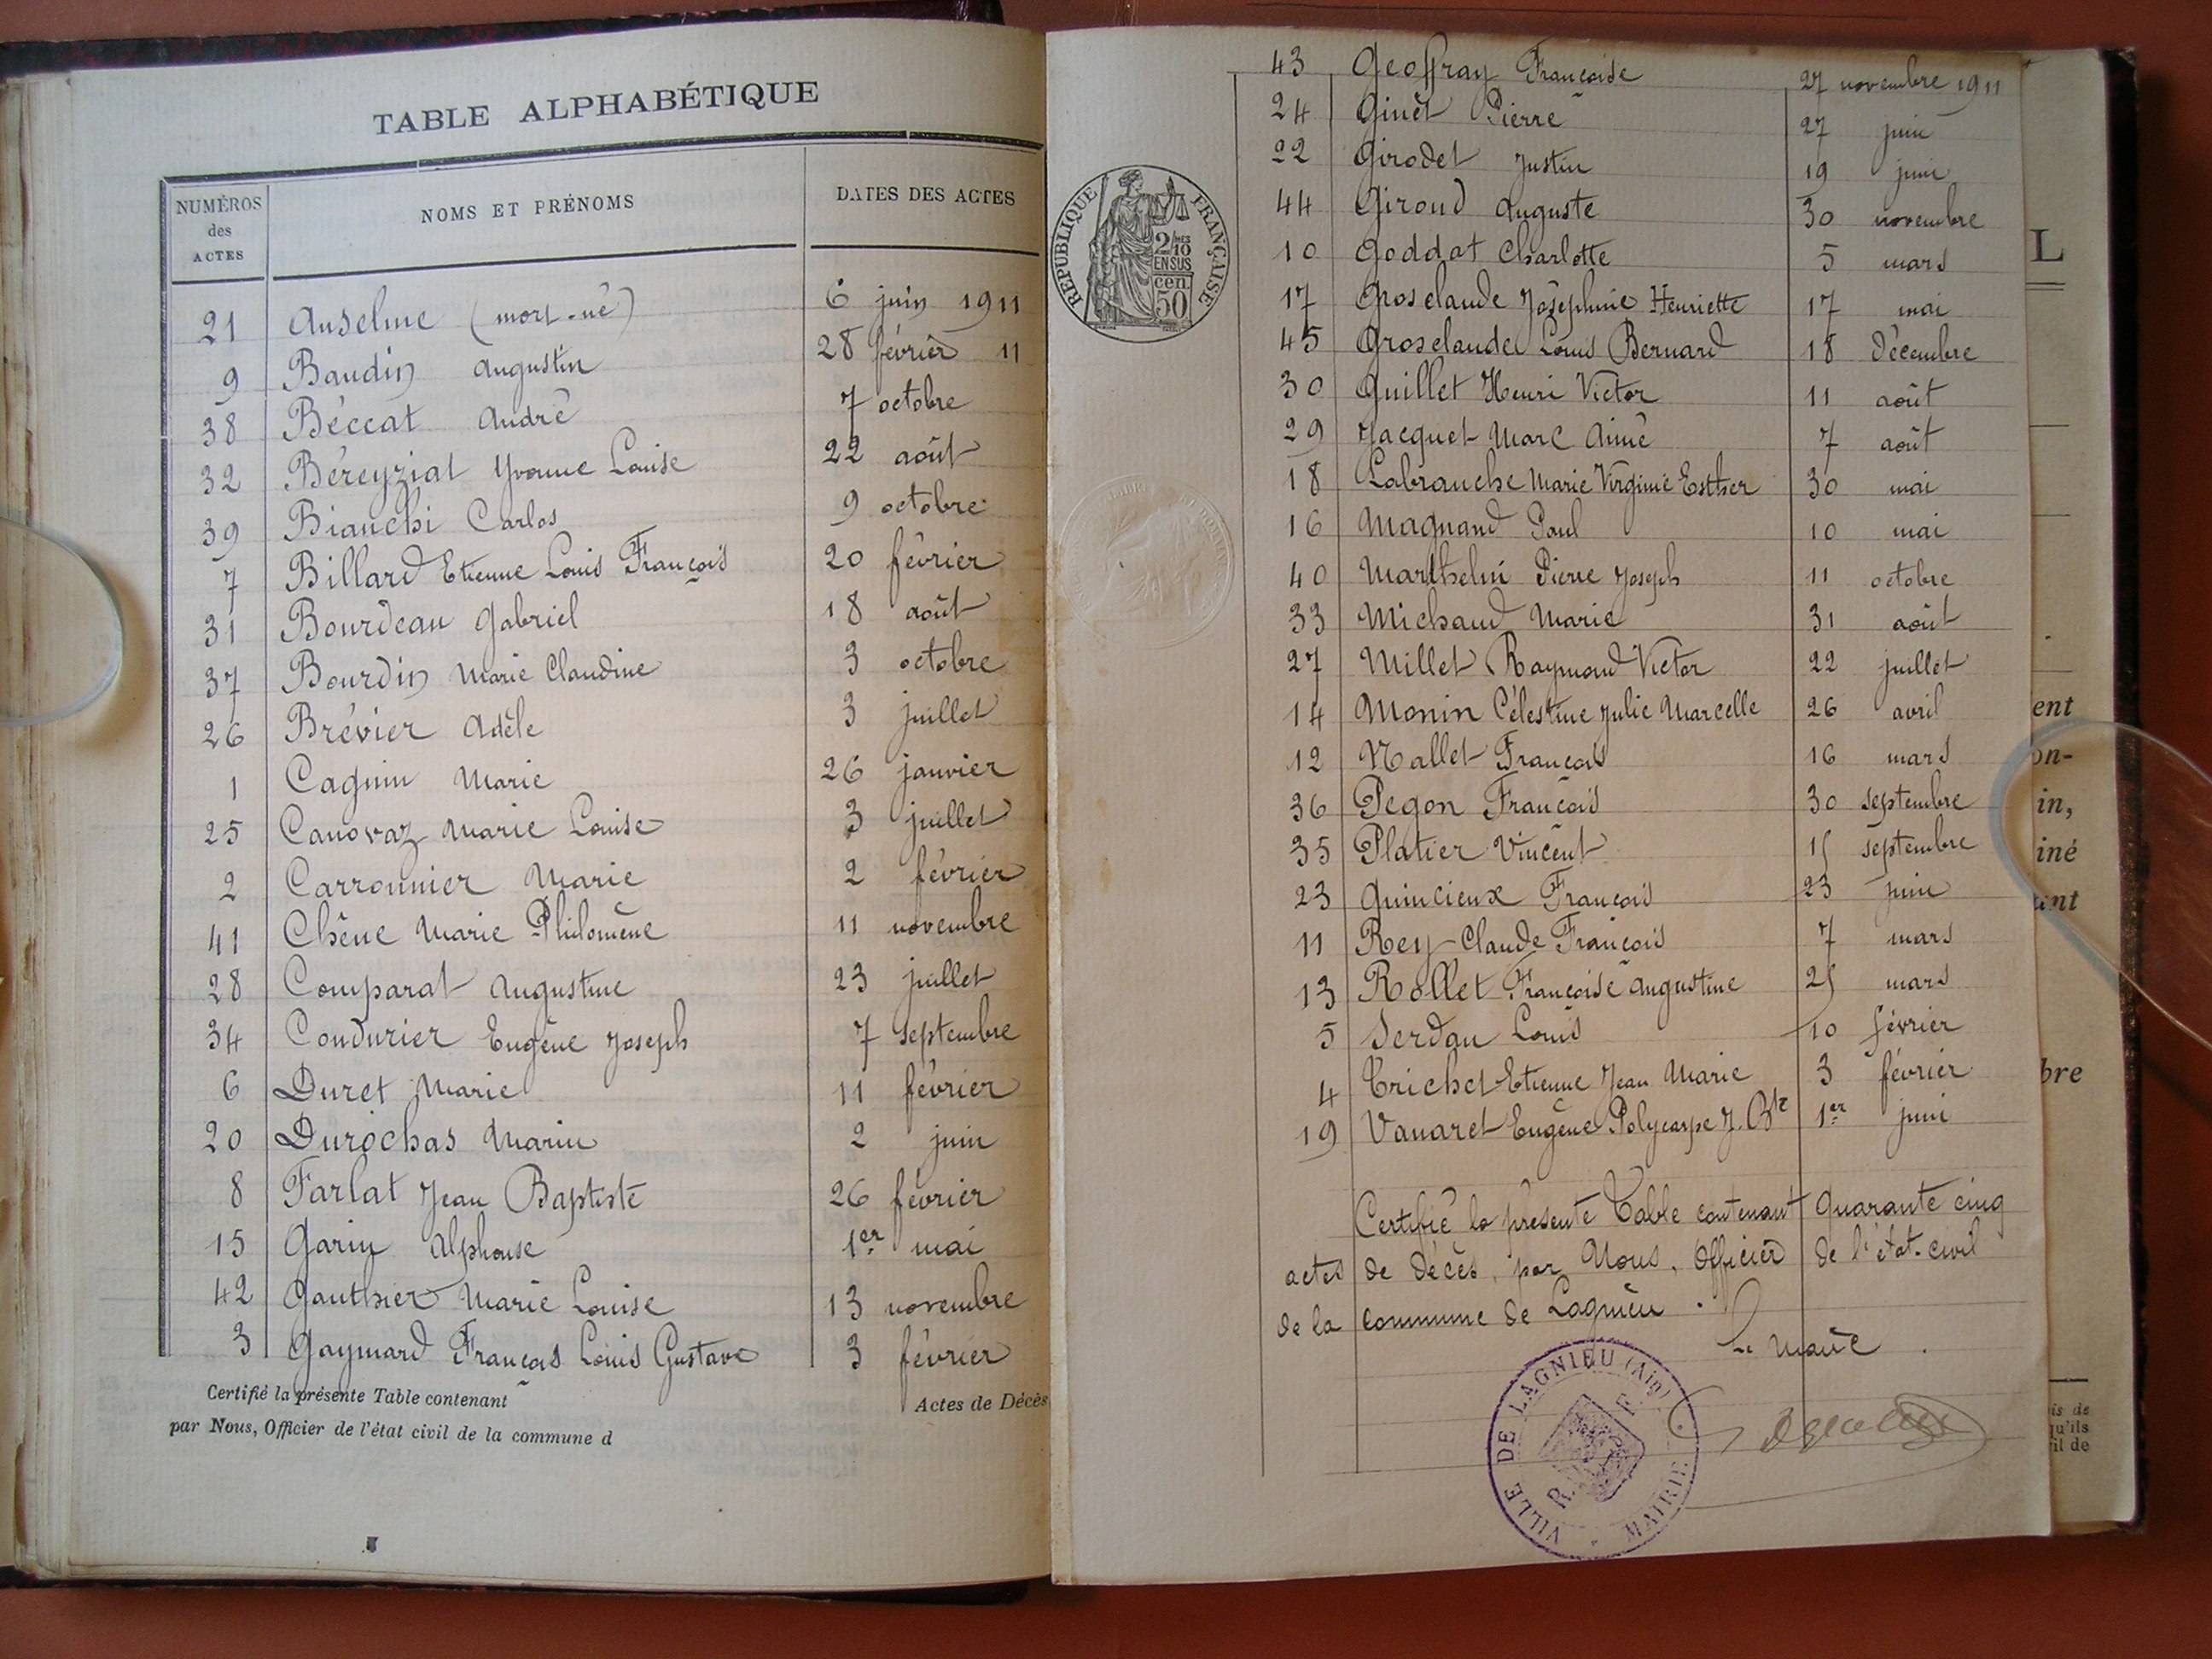 TABLE ALPHABÉTIQUE
NUMÉROS des ACTES NOMS ET PRÉNOMS DATES DES ACTES
21 Anselme (mort-né) 6 juin 1911
9 Baudin Augustin 28 février 11
38 Béccat André 7 octobre
32 Béreyziat Yvonne Louise 22 août
39 Bianchi Carlos 9 octobre
7 Billard Etienne Louis François 20 février
31 Bourdeau Gabriel 18 août
37 Bourdin Marie Claudine 3 octobre
26 Brévier Adèle 3 juillet
1 Cagnin Marie 26 janvier
25 Canovaz Marie Louise 3 juillet
2 Carronnier Marie 2 février
41 Chêne Marie Philomène 11 novembre
28 Comparat Augustine 23 juillet
34 Condurier Eugène Joseph 7 septembre
6 Duret Marie 11 février
20 Durochas Marin 2 juin
8 Farlat Jean Baptiste 26 février
15 Garin Alphonse 1er mai
42 Gauthier Marie Louise 13 novembre
3 Gaymard François Louis Gustave 3 février
Certifié la présente Table contenant Actes de Décès
par Nous, Officier de l'état civil de la commune d
43 Geoffray Françoise 27 novembre 1911
24 Ginet Pierre 27 juin
22 Girodet Justin 19 juin
44 Giroud Auguste 30 novembre
10 Goddat Charlotte 5 mars
17 Grosclaude Joséphine Henriette 17 mai
45 Grosclaude Louis Bernard 18 décembre
30 Guillet Henri Victor 11 août
29 Jacquet Marc Aimé 7 août
18 Labranche Marie Virginie Esther 30 mai
16 Magnand Paul 10 mai
40 Marthelin Pierre Joseph 11 octobre
33 Michaud Marie 31 août
27 Millet Raymond Victor 22 juillet
14 Monin Célestine Julie Marcelle 26 avril
12 Nallet François 16 mars
36 Pegon François 30 septembre
35 Platier Vincent 15 septembre
23 Quincieux François 23 juin
11 Rey Claude François 7 mars
13 Rollet Françoise Augustine 25 mars
5 Serdan Louis 10 février
4 Trichet Etienne Jean Marie 3 février
19 Vanaret Eugène Polycarpe J. Bte 1er juin
Certifié la présente Table contenant quarante cinq
actes de décès, par Nous, Officier de l'état-civil
de la commune de Lagnieu.
Le Maire
RÉPUBLIQUE FRANÇAISE
2/10 EN SUS
50 cen.
VILLE DE LAGNIEU (Ain)
R. F.
MAIRIE
L
ent
on-
in,
iné
ant
bre
is de
qu'ils
il de